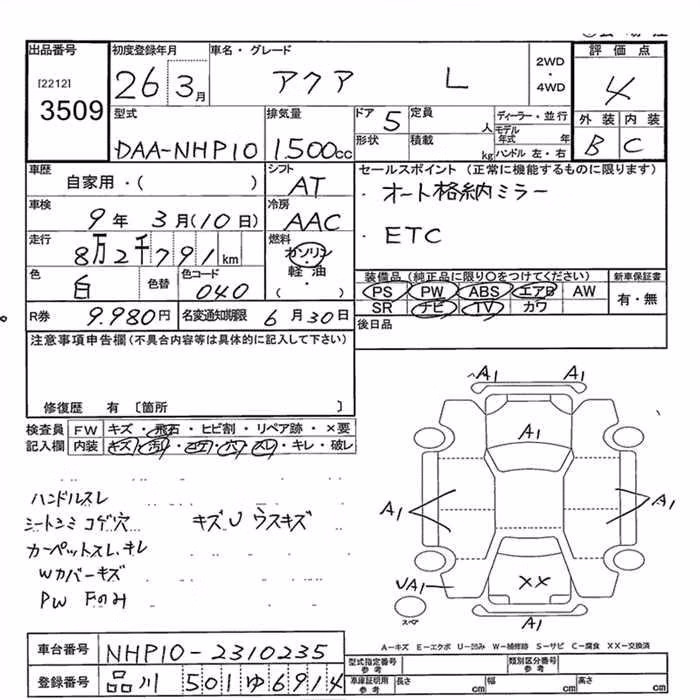 出品番号 初度登録年月 車名・グレード 2WD・4WD 評価点
[2212] 3509 26 3月 アクア L 4
型式 排気量 ドア 5 定員 人 ディーラー・並行 外装 内装
DAA-NHP10 1.500cc 形状 積載 kg モデル年式 年 ハンドル 左・右 B C
車歴 シフト セールスポイント (正常に機能するものに限ります)
自家用・( ) AT ・オート格納ミラー
車検 冷房
9年 3月(10日) AAC ・ETC
走行 燃料
8万2千791km ガソリン・軽油 ( )
色 白 色替 色コード 040 装備品 (純正品に限り○をつけてください) 新車保証書
PS PW ABS エアB AW 有・無
SR ナビ TV カワ
R券 9.980円 名変通知期限 6月30日 後日品
注意事項申告欄(不具合内容等は具体的に記入して下さい)
修復歴 有 〔箇所 〕
検査員 FW キズ・飛石・ヒビ割・リペア跡・×要
記入欄 内装 キズ・汚れ・コゲ・穴・スレ・キレ・破レ
A1 A1
A1
ハンドルスレ
シートシミ コゲ穴 キズU ウスキズ A1 A1
カーペットスレ.キレ
Wカバーキズ UA1 XX
PW Fのみ
スペア A1
A-キズ E-エクボ U-凹み W-補修跡 S-サビ C-腐食 XX-交換済
車台番号 NHP10-2310235
型式指定番号 参考 類別区分番号 参考
登録番号 品川 501 ゆ 6914
車庫証明用 参考 長さ cm 幅 cm 高さ cm